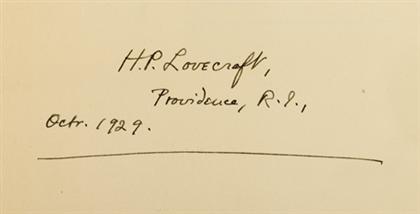 H.P. Lovecraft,
Providence, R.I.,
Octr. 1929.